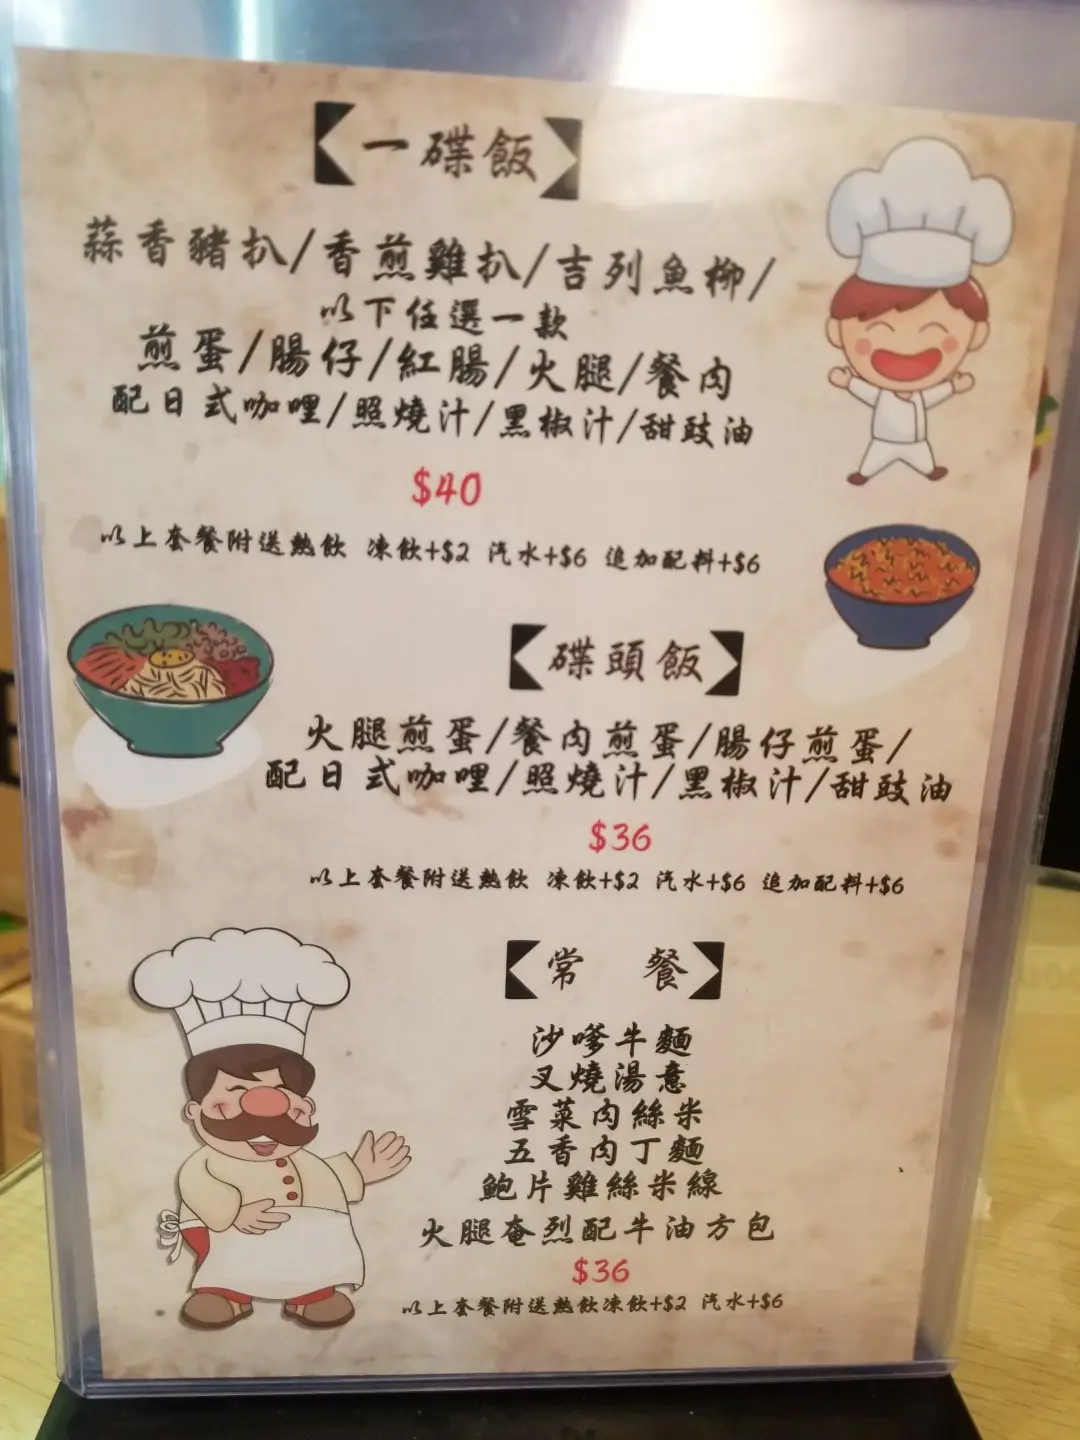 【一碟飯】
蒜香豬扒/香煎雞扒/吉列魚柳/
以下任選一款
煎蛋/腸仔/紅腸/火腿/餐肉
配日式咖哩/照燒汁/黑椒汁/甜豉油
$40
以上套餐附送熱飲 凍飲+$2 汽水+$6 追加配料+$6
【碟頭飯】
火腿煎蛋/餐肉煎蛋/腸仔煎蛋/
配日式咖哩/照燒汁/黑椒汁/甜豉油
$36
以上套餐附送熱飲 凍飲+$2 汽水+$6 追加配料+$6
【常 餐】
沙嗲牛麵
叉燒湯意
雪菜肉絲米
五香肉丁麵
鮑片雞絲米線
火腿奄烈配牛油方包
$36
以上套餐附送熱飲凍飲+$2 汽水+$6